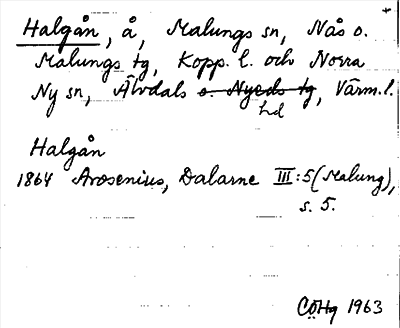 Halgån, å, Malungs sn, Nås o.
Malungs tg, Kopp. l. och Norra
Ny sn, Älvdals o. Nyeds tg, Värm. l.
hd
Halgån
1864 Arosenius, Dalarne III:5 (Malung),
s. 5.
CÖHg 1963